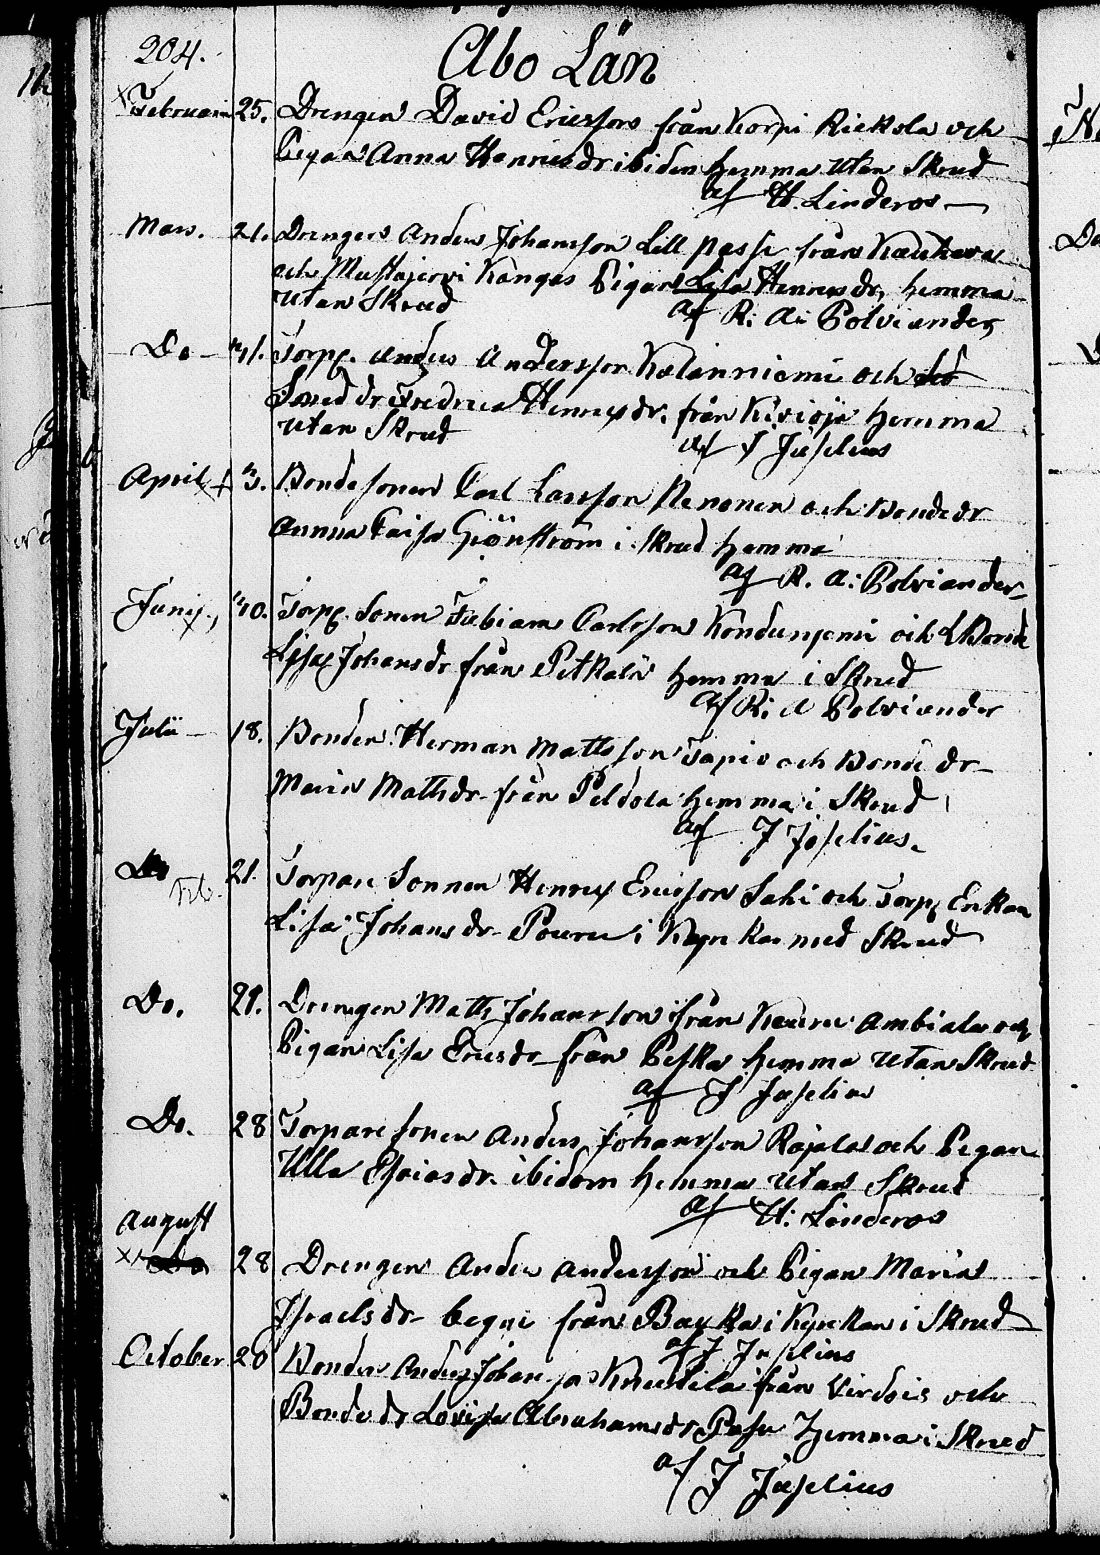 204.
Abo Län
Februari 25. Drengen David Ericsson från Korpi Rickola och
Pigan Anna Henricsdr ibidem hemma utan Skrud
af H. Linderos
Mars. 21. Drengen Anders Johansson Lill passi från Kauhava
och Mustajervi Kangas Pigan Lisa Henricsdr, hemma
utan Skrud
af R. A: Polviander
Do 31. Torp. Anders Andersson Katanniemi och
Smed dr Fredrica Henricsdr. från Kivioja hemma
utan Skrud
af J Juselius
April 3. Bonde sonen Carl Larsson Nenonen och Bonde dr
Anna Caisa Grönström i Skrud hemma
af R. A: Polviander
Junij 30. Torp. Sonen Fabian Carlsson Kondunjemi och
Lisa Johansdr från Pitkälä hemma i Skrud
af R: A Polviander
Julii 18. Bonden Herman Mattsson Tapio och Bonde dr
Maria Mathsdr från Peldola hemma i Skrud
af J Juselius.
Do Feb. 21. Torpare Sonnen Henric Ericsson Sahi och Torp Enkan
Lisa Johansdr Pouru i Kyrckan med Skrud
Do. 21. Drengen Matts Johansson från Keuru Ambiala och
Pigan Lisa Ericsdr från Peska hemma utan Skrud
af J Juselius
Do. 28 Torpare sonen Anders Johansson Rajala och Pigan
Ulla Esaiasdr. ibidem hemma utan Skrud
af H: Linderos
August
Do 28 Drengen Anders Andersson och Pigan Maria
Israelsdr begge från i Kyrckan i Skrud
af J Juselius
October 20 Bonden Anders Johansson Knuutila från Virdois och
Bonde dr Lovisa Abrahamsdr hemma i Skrud
af J Juselius